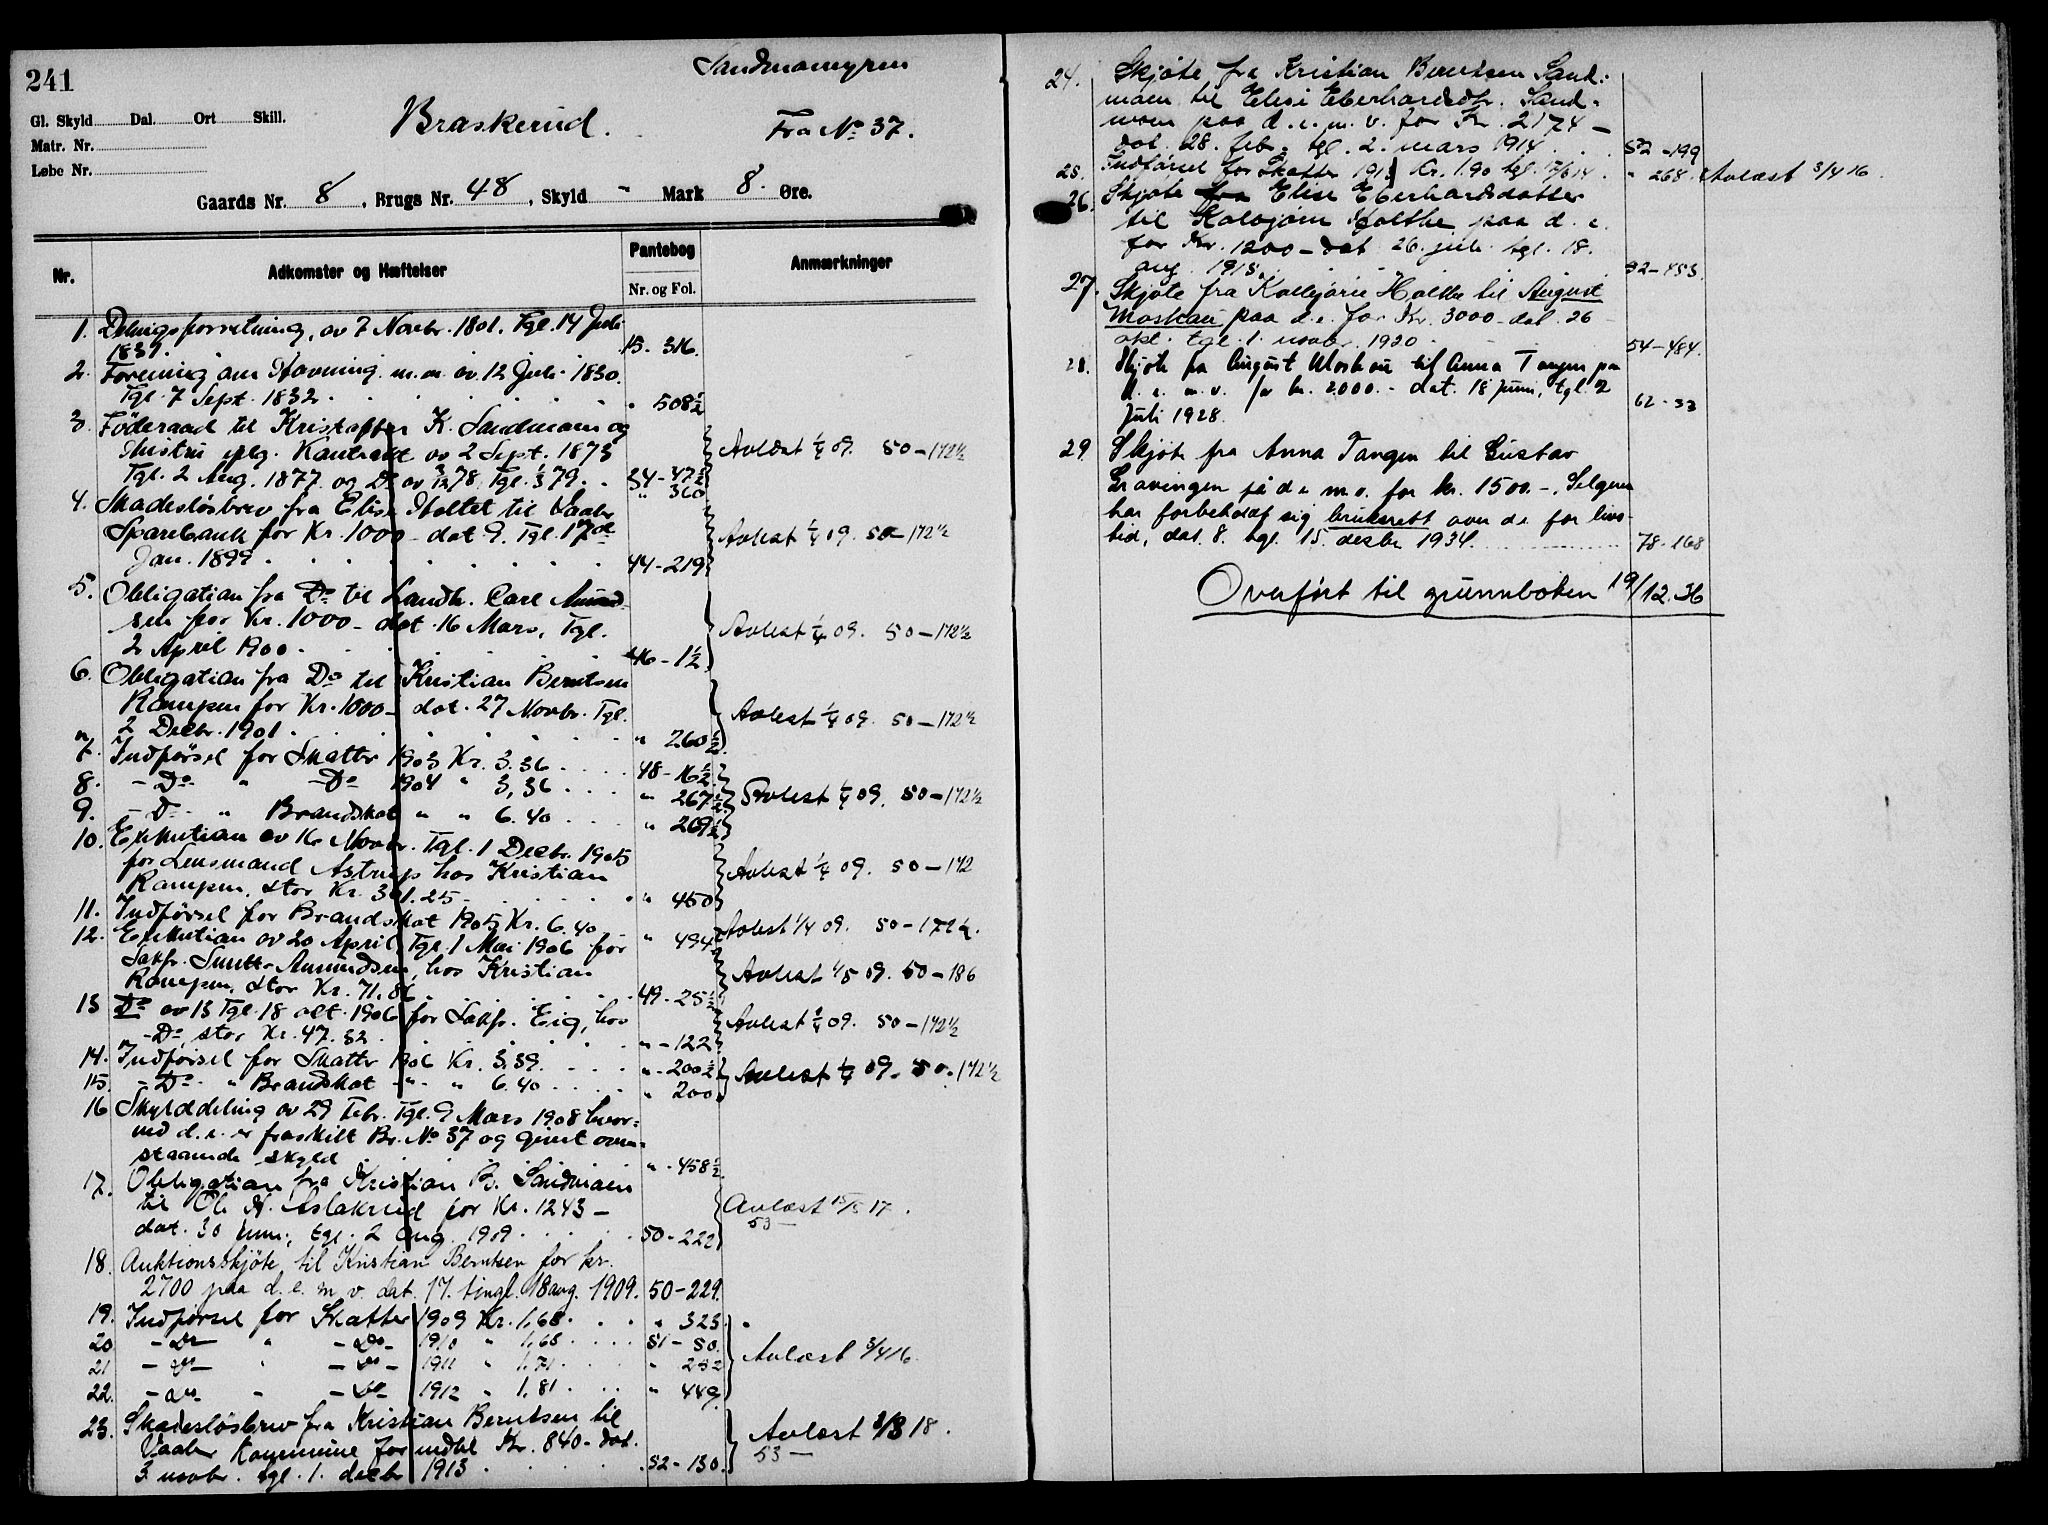 241
Sandmomyren
Gl. Skyld Dal. Ort Skill.
Matr. Nr.
Løbe Nr.
Braskerud.
Fra No 37.
Gaards Nr. 8, Brugs Nr. 48, Skyld - Mark 8. Øre.
Nr. Adkomster og Hæftelser Pantebog Anmærkninger
Nr. og Fol.
1. Delingsforretning, av 7 Novbr. 1801. Tgl. 14 Juli
1831. 15. 316.
2. Forening om Havning m.m. av 12 Juli 1830.
Tgl. 7 Sept. 1832 " 508½
3. Føderaad til Kristoffer K. Sandmoen og
Hustru iflg. Kontrakt av 2 Sept. 1873 Avlæst ¼ 09. 50-172½
Tgl. 2 Aug. 1877 og Do av 78. Tgl. 79. 34-47½
" 360
4. Skadesløsbrev fra Elise Holtet til Vaaler
Sparebank for Kr. 1000 - dat 9. Tgl. 17de Avlæst ¼ 09. 50-172½
Jan. 1899 44-219
5. Obligation fra Do til Landh. Carl Amund-
sen for Kr. 1000 - dat. 16 Mars, Tgl. Avlæst ¼ 09. 50-172½
2 April 1900 46-1½
6. Obligation fra Do til Kristian Berntsen
Rampen for Kr. 1000 - dat. 27 Novbr. Tgl. Avlest ¼ 09. 50-172½
2 Decbr. 1901 " 260½
7. Indførsel for Skatter 1903 Kr. 3.36 48-16½
8. - Do " - Do 1904 " 3,36 " 267½ Avlest ¼ 09. 50-172½
9. - Do " Brandskat " " 6.40 " 269½
10. Exekution av 16 Novbr. Tgl. 1 Decbr. 1905
for Lensmand Astrup hos Kristian Avlest ¼ 09. 50-172
Rampen, stor Kr. 301.25 " 450
11. Indførsel for Brandskat 1905 Kr. 6.40 " 494 Avlest 1/4 09. 50-172½.
12. Exekution av 20 April, Tgl. 1 Mai 1906 for
Sakf. Smitt-Amundsen, hos Kristian Avlest 1/5 09. 50-186
Rampen, stor Kr. 71.86 49-25½
13 Do av 13 Tgl. 18 okt. 1906 for Sakf. Eig, hos Avlest ¼ 09. 50-172½
- Do, stor Kr. 47.52 " - 122
14. Indførsel for Skatter 1906 Kr. 3.39. " - 200½ Avlest ¼ 09. 50.172½
15. - Do - " Brandskat - " - " 6.40 " 200
16 Skylddeling av 29 Febr. Tgl. 9 Mars 1908 hvor-
ved d. e. er fraskilt Br. No 37 og givet oven-
staaende skyld " - 458½
17. Obligation fra Kristian B. Sandmoen
til Ole H. Aslakrud for Kr. 1243 - Avlæst 15/5 17.
53 -
dat. 30 juni, tgl. 2 aug. 1909 50-222
18. Auktionsskjøte til Kristian Berntsen for kr.
2700 paa d. e. m v. dat. 17. tingl. 18 aug. 1909. 50-229.
19. Indførsel for Skatter 1909 Kr. 1,68. " 323.
20 - Do - " - Do - 1910 " 1,68 51-50. Avlæst 3/4 16.
21 - Do - " - Do - 1911 " 1,71 " 232
22. - Do - " - Do - 1912 " 1,81 " 449
23. Skadesløsbrev fra Kristian Berntsen til
Vaaler Kommune for indtil Kr. 840 - dat. Avlæst 2/3 18.
53 -
3 novbr. tgl. 1. decbr 1913 52-130.
24. Skjøte fra Kristian Berntsen Sand-
moen til Elise Eberhardsdtr. Sand-
moen paa d. e. m. v. for Kr. 2174 -
dat. 28. feb. tgl. 2. mars 1914 52-199
25. Indførsel for Skatter 1913 Kr. 1.90 tgl. 17/6 14. " 268. Avlæst 3/4 16.
26. Skjøte fra Elise Eberhardsdatter
til Kolbjørn Holthe paa d. e.
for Kr. 1200 - dat 26. juli tgl. 18.
aug. 1915. 52-453.
27. Skjøte fra Kolbjørn Holthe til August
Moskau paa d.e. for Kr. 3000 - dat. 26
okt. tgl. 1. novbr. 1920 54-484.
28. Skjøte fra August Moskau til Anna Tangen paa
d. e. m. v. for kr. 2000.- dat. 18 juni, tgl. 2
Juli 1928. 62-33
29 Skjøte fra Anna Tangen til Gustav
Gravingen på d e m.v. for kr. 1500.-. Selgeren
har forbeholdt sig bruksrett over d.e for livs-
tid, dat. 8. tgl. 15. desbr 1934. 78-168
Overført til grunnboken 19/12.36